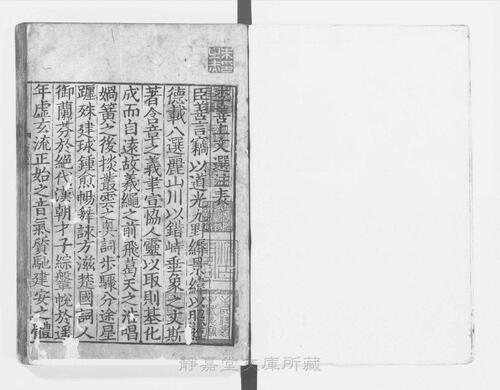 李善上文選注表
臣善言竊以道光九野縟景緯以照臨
德載八埏麗山川以錯峙垂象之文斯
著含章之義聿宣恊人靈以取則基化
成而自遠故羲繩之前飛葛天之浩唱
媧簧之後掞叢雲之奧詞步驟分途星
躔殊建球鍾愈暢舞詠方滋楚國詞人
御蘭芬於絶代漢朝才子綜鞶帨於遥
年虚玄流正始之音氣質馳建安之體
静嘉堂文庫所藏